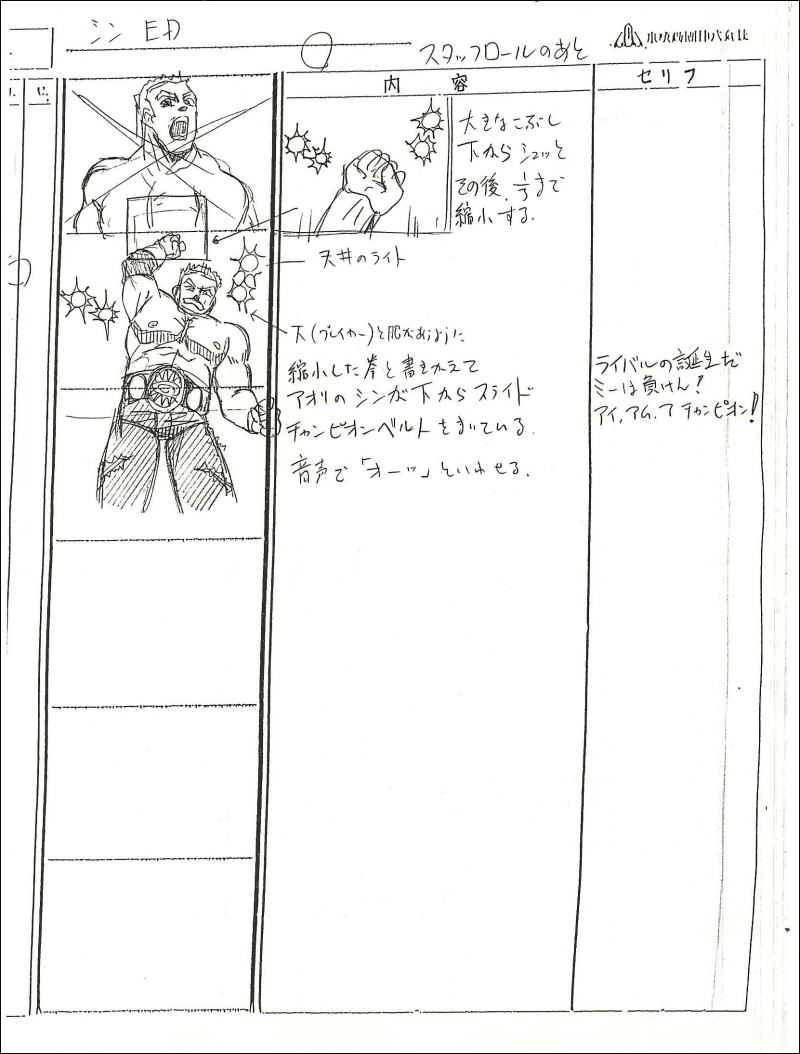 シン ED
スタッフロールのあと
内 容
セリフ
大きなこぶし
下から シュッと
その後、1/3 まで
縮小する.
天井のライト
天(プレイヤー)と
縮小した拳と書きかえて
アオリの シンが 下から スライド
チャンピオンベルトをまいている.
音声で「オーッ」といわせる.
ライバルの誕生だ
ミーは負けん!
アイ,アム,ア チャンピオン!